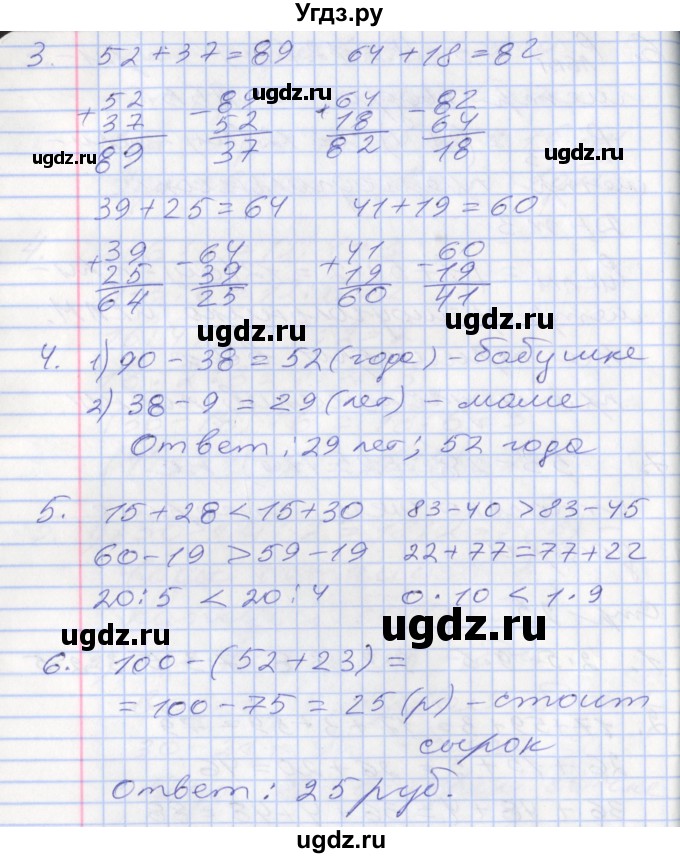 Угдз.ру
3. 52+37=89 64+18=82
+52 -89 +64 -82
37 52 18 64
89 37 82 18
39+25=64 41+19=60
+39 -64 +41 -60
25 39 19 19
64 25 60 41
4. 1) 90-38=52 (года) - бабушке
2) 38-9=29 (лет) - маме
Ответ: 29 лет; 52 года
5. 15+28<15+30 83-40>83-45
60-19>59-19 22+77=77+22
20:5<20:4 0·10<1·9
6. 100-(52+23)=
=100-75=25 (р) - стоит
сырок
Ответ: 25 руб.
ugdz.ru
ugdz.ru
ugdz.ru
ugdz.ru
ugdz.ru
ugdz.ru
ugdz.ru
ugdz.ru
ugdz.ru